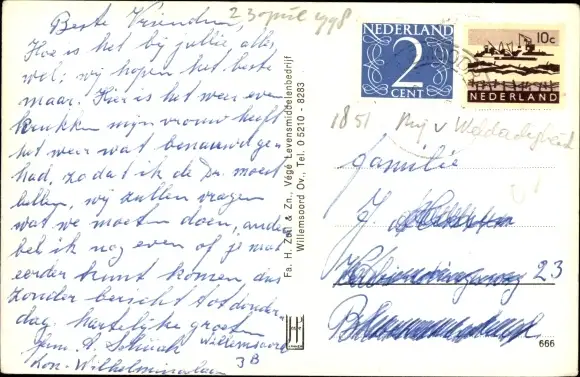 Beste Vrienden,
23 april 1998
Hoe is het bij jullie alles
wel; wij hopen het beste
maar. Hier is het weer even
krukken mijn vrouw heeft
het weer wat benauwd ge
had, zodat ik de Dr. moest
bellen, wij zullen vragen
wat we moeten doen, anders
bel ik nog even of je wat
eerder kunt komen dus
zonder bericht tot donder
dag. hartelijke groeten
fam. A. Willemsoord
Kon. Wilhelminalaan
3B
Fa. H. Zn., Végé Levensmiddelenbedrijf
Willemsoord Ov., Tel. 0 5210 - 8283
NEDERLAND
2
CENT
10c
NEDERLAND
1851 Mij v Weldadigheid
familie
J.
23
666